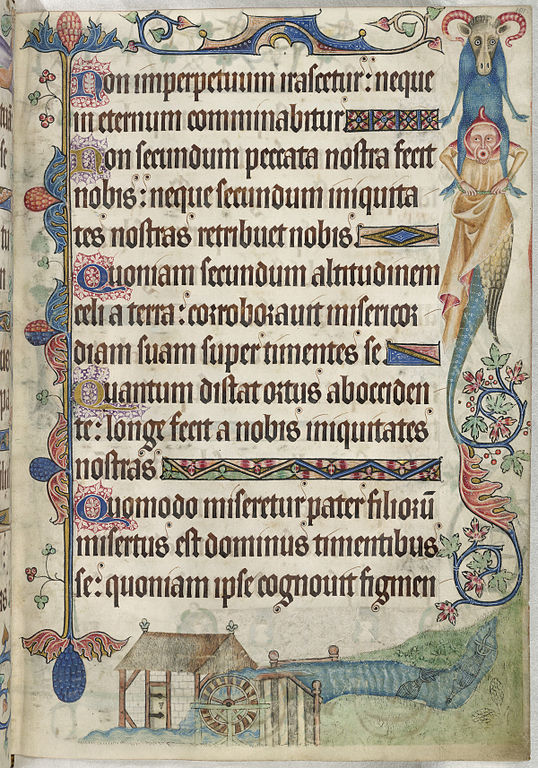 Non imperpetuum irascetur: neque
in eternum comminabitur
Non secundum peccata nostra fecit
nobis: neque secundum iniquita
tes nostras retribuet nobis.
Quoniam secundum altitudinem
celi a terra: corroborauit misericor
diam suam super timentes se
Quantum distat ortus ab occiden
te: longe fecit a nobis iniquitates
nostras
Quomodo miseretur pater filiorū
misertus est dominus timentibus
se: quoniam ipse cognouit figmen